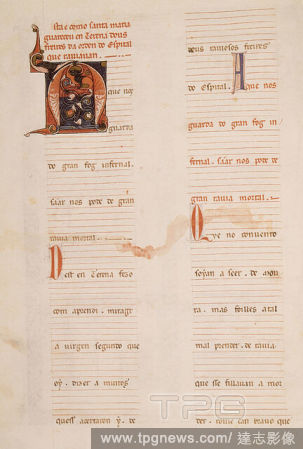 sta e como santa maria
guareceu en Terena dous
freires da orden do Espital
que raviavan
que nos
guarda
do gran fog infernal.
saar nos pode de gran
ravia mortal.
est en Terena fezo
com aprendi. miragr
a virgen segundo que
oy. dizer a muitos
quess acertaron y. de
dous raviosos freires
do Espital. A que nos
guarda do gran fog in
fernal. saar nos pode de
gran ravia mortal.
ye no convento
soyan a seer. de mou
ra. mas foilles atal
mal prender. de ravia.
que sse fillavan a mor
der. come can bravo que
TPG
www.tpgnews.com/達志影像